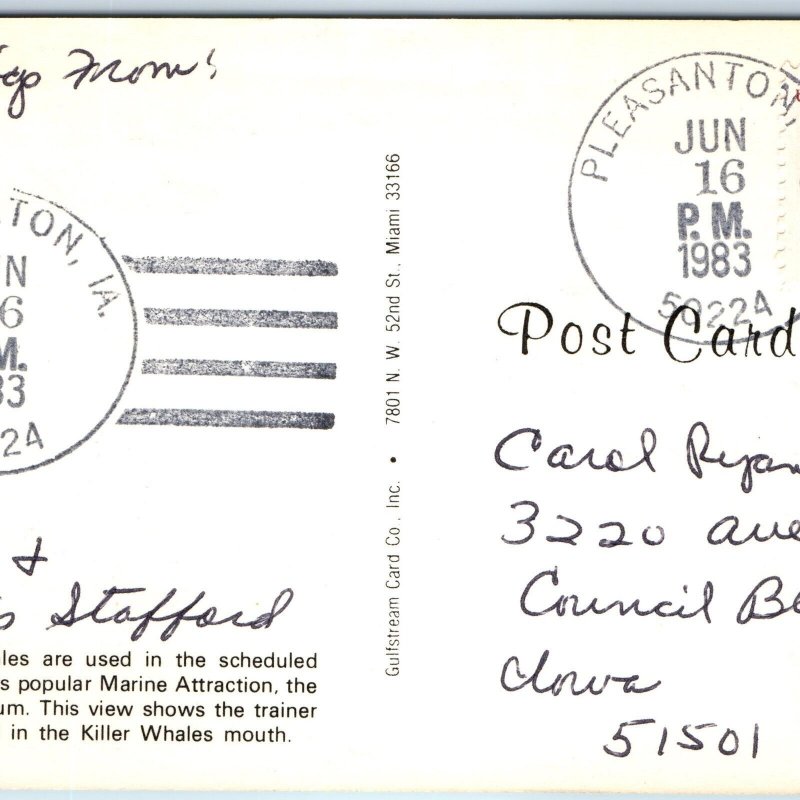 From!
TON, IA.
N
6
M.
83
24
&
Stafford
les are used in the scheduled
s popular Marine Attraction, the
um. This view shows the trainer
in the Killer Whales mouth.
Gulfstream Card Co., Inc. • 7801 N. W. 52nd St., Miami 33166
PLEASANTON,
JUN
16
P.M.
1983
50224
Post Card
Carol Ryan
3220 Ave
Council Bl
Iowa
51501